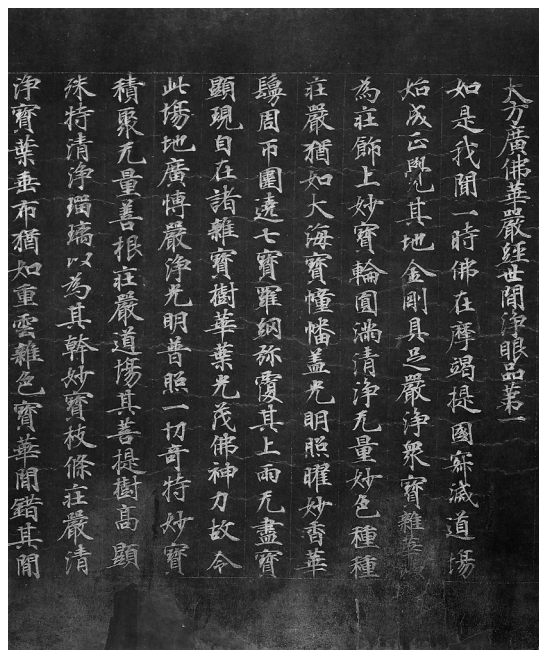 大方廣佛華嚴經世間淨眼品第一
如是我聞一時佛在摩竭提國寂滅道場
始成正覺其地金剛具足嚴淨衆寶雜華
為莊飾上妙寶輪圓滿清淨无量妙色種種
莊嚴猶如大海寶幢幡盖光明照曜妙香華
鬘周帀圍遶七寶羅網弥覆其上雨无盡寶
顯現自在諸雜寶樹華葉光茂佛神力故令
此場地廣博嚴淨光明普照一切奇特妙寶
積聚无量善根莊嚴道場其菩提樹高顯
殊特清淨瑠璃以為其幹妙寶枝條莊嚴清
淨寶葉垂布猶如重雲雜色寶華間錯其間